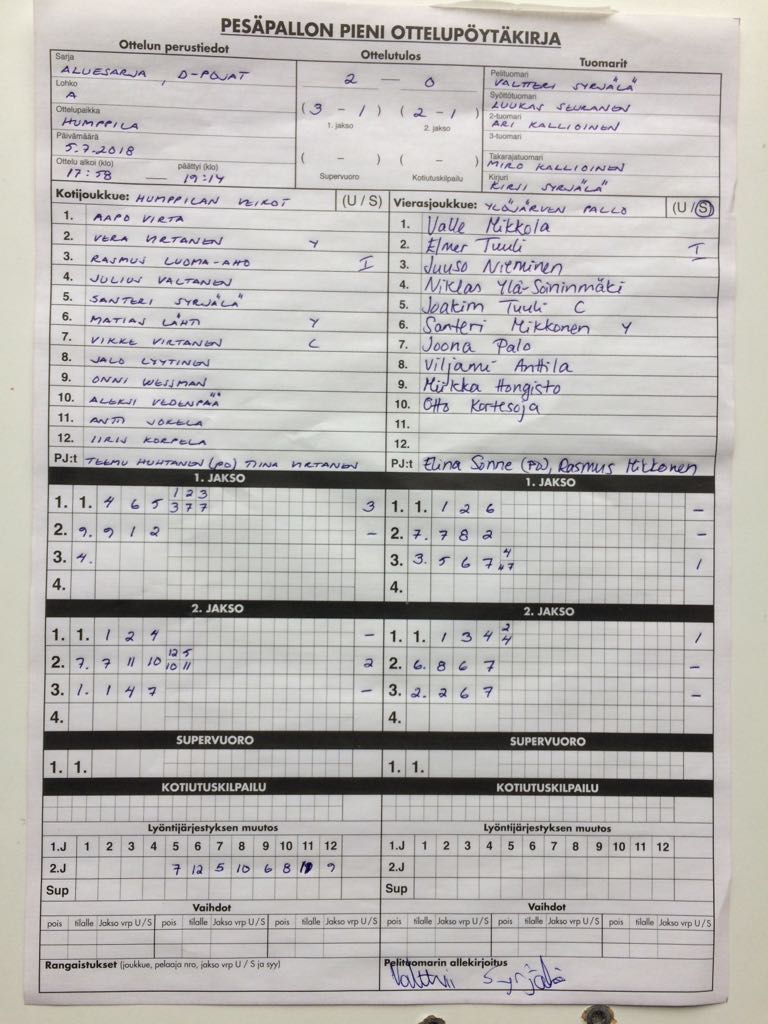 PESÄPALLON PIENI OTTELUPÖYTÄKIRJA
Ottelun perustiedot
Sarja
ALUESARJA, D-POJAT
Lohko
A
Ottelupaikka
HUMPPILA
Päivämäärä
5.7.2018
Ottelu alkoi (klo) päättyi (klo)
17:58 — 19:14
Ottelutulos
2 — 0
(3 - 1) (2 - 1)
1. jakso 2. jakso
( - ) ( - )
Supervuoro Kotiutuskilpailu
Tuomarit
Pelituomari
VALTTERI SYRJÄLÄ
Syöttötuomari
LUUKAS SEURANEN
2-tuomari
ARI KALLIOINEN
3-tuomari
Takarajatuomari
MIRO KALLIOINEN
Kirjuri
KIRSI SYRJÄLÄ
Kotijoukkue: HUMPPILAN VEIKOT (U / S)
1. AAPO VIRTA
2. VERA VIRTANEN Y
3. RASMUS LUOMA-AHO I
4. JULIUS VALTANEN
5. SANTERI SYRJÄLÄ
6. MATIAS LÄHTI Y
7. VIKKE VIRTANEN C
8. JALO LYYTINEN
9. ONNI WESSMAN
10. ALEKSI VEDENPÄÄ
11. ANTTI JOKELA
12. IIRIS KORPELA
PJ:t TEEMU HUHTANEN (PJ) TIINA VIRTANEN
Vierasjoukkue: YLÖJÄRVEN PALLO (U / S)
1. Valle Mikkola
2. Elmer Tuuli I
3. Juuso Nieminen
4. Niklas Ylä-Soininmäki
5. Joakim Tuuli C
6. Santeri Mikkonen Y
7. Joona Palo
8. Viljami Anttila
9. Miikka Hongisto
10. Otto Kortesoja
11.
12.
PJ:t Elina Sonne (PJ), Rasmus Mikkonen
1. JAKSO
1 2 3
1. 1. 4 6 5 3 7 7 3
2. 9. 9 1 2 -
3. 4.
4.
1. JAKSO
1. 1. 1 2 6 -
2. 7. 7 8 2 -
4
3. 3. 5 6 7 7 1
4.
2. JAKSO
1. 1. 1 2 4 -
12 5
2. 7. 7 11 10 10 11 2
3. 1. 1 4 7 -
4.
2. JAKSO
2
1. 1. 1 3 4 4 1
2. 6. 8 6 7 -
3. 2. 2 6 7 -
4.
SUPERVUORO
1. 1.
SUPERVUORO
1. 1.
KOTIUTUSKILPAILU
KOTIUTUSKILPAILU
Lyöntijärjestyksen muutos
1.J 1 2 3 4 5 6 7 8 9 10 11 12
2.J 7 12 5 10 6 8 11 9
Sup
Lyöntijärjestyksen muutos
1.J 1 2 3 4 5 6 7 8 9 10 11 12
2.J
Sup
Vaihdot
pois tilalle Jakso vrp U / S pois tilalle Jakso vrp U / S pois tilalle Jakso vrp U / S
Vaihdot
pois tilalle Jakso vrp U / S pois tilalle Jakso vrp U / S pois tilalle Jakso vrp U / S
Rangaistukset (joukkue, pelaaja nro, jakso vrp U / S ja syy)
Pelituomarin allekirjoitus
Valtteri Syrjälä